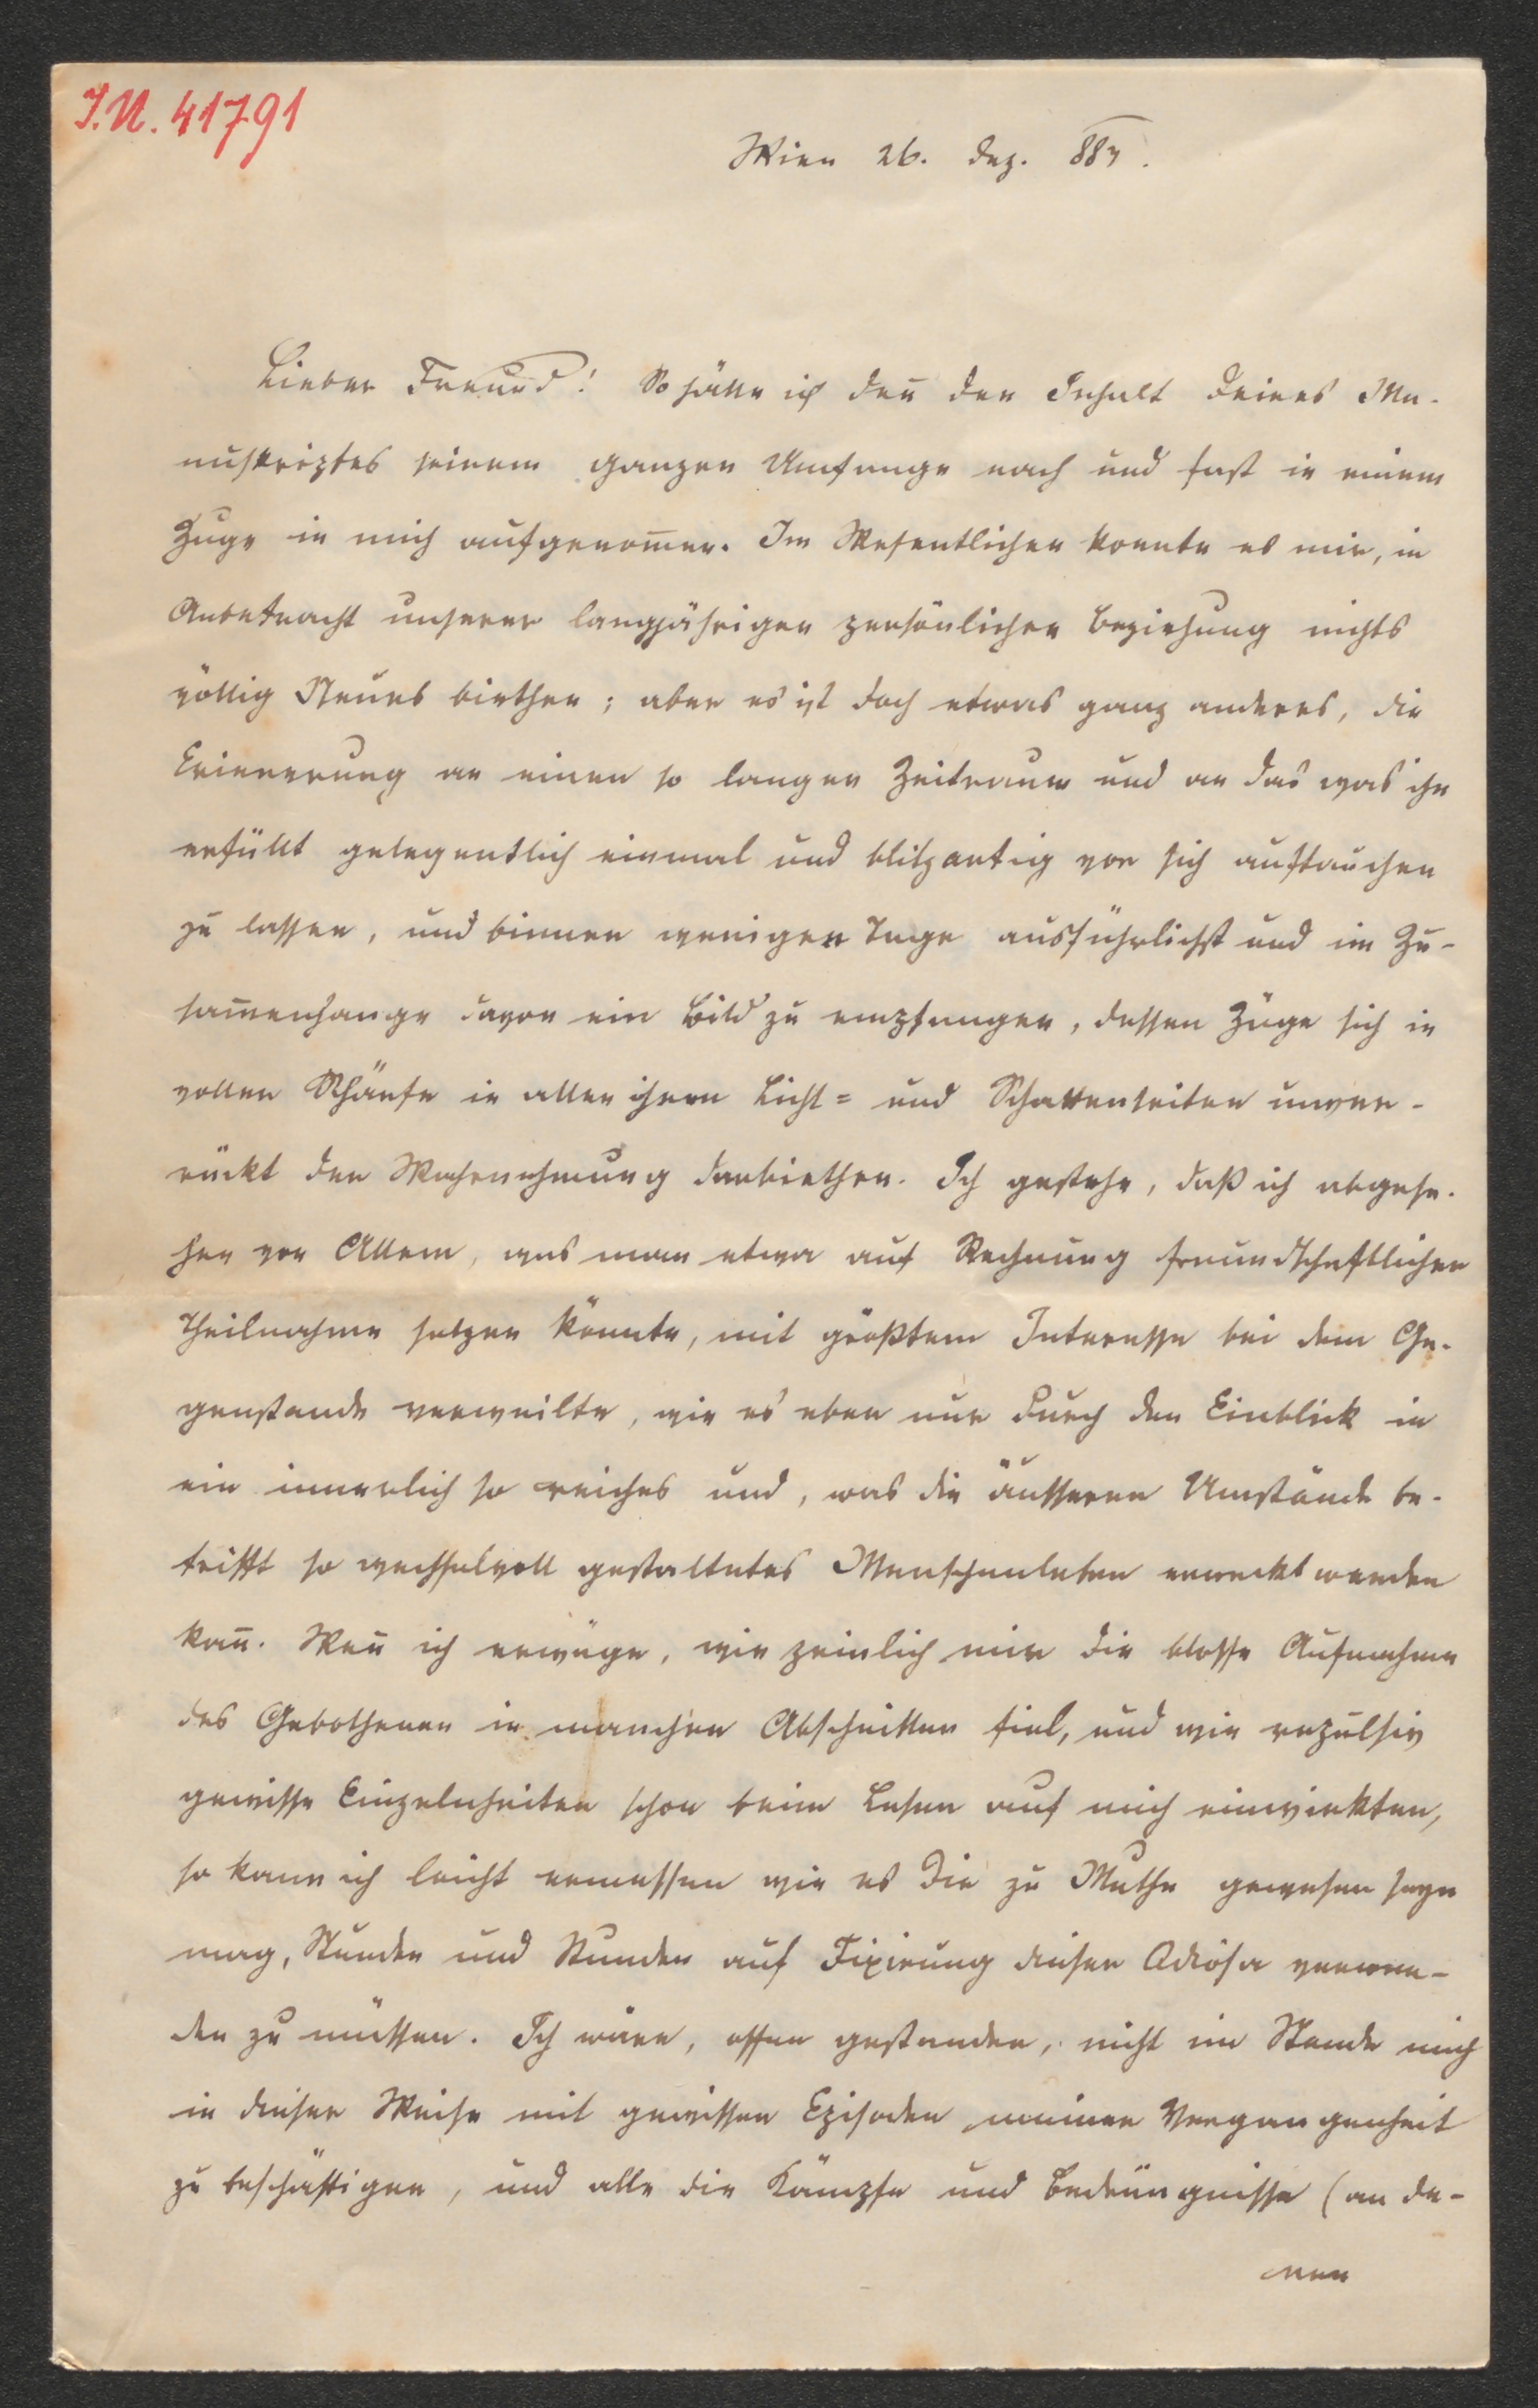 I.N. 41791
Wien 26. Dez. 887.
Lieber Freund! So hätte ich deñ den Inhalt Deines Ma-
nuskriptes seinem ganzen Umfange nach und fast in einem
Zuge in mich aufgenom̄en. Im Wesentlichen konnte es mir, in
Anbetracht unserer langjährigen persönlichen Beziehung nichts
völlig Neues biethen; aber es ist doch etwas ganz anderes, die
Erinnerung an einen so langen Zeitraum und an das was ihn
erfüllt gelegentlich einmal und blitzartig vor sich auftauchen
zu lassen, und binnen weniger Tage ausführlichst und im Zu-
sam̄enhange davon ein Bild zu empfangen, dessen Züge sich in
voller Schärfe in allen ihren Licht= und Schattenseiten unver-
rückt der Wahrnehmung darbiethen. Ich gestehe, daß ich abgese-
hen von Allem, was man etwa auf Rechnung freundschaftlicher
Theilnahme setzen könnte, mit größtem Interesse bei dem Ge-
genstande verweilte, wie es eben nur durch den Einblick in
ein innerlich so reiches und, was die äusseren Umstände be-
trifft so wechselvoll gestaltetes Menschenleben erweckt werden
kañ. Weñ ich erwäge, wie peinlich mir die blosse Aufnahme
des Gebothenen in manchen Abschnitten fiel, und wie repulsiv
gewisse Einzelnheiten schon beim Lesen auf mich einwirkten,
so kann ich leicht ermessen wie es Dir zu Muthe gewesen seyn
mag, Stunden und Stunden auf Fixirung dieser Odiosa verwen-
den zu müssen. Ich wäre, offen gestanden, nicht im Stande mich
in dieser Weise mit gewissen Episoden meiner Vergangenheit
zu beschäftigen, und alle die Kämpfe und Bedrängnisse (an de-
nen